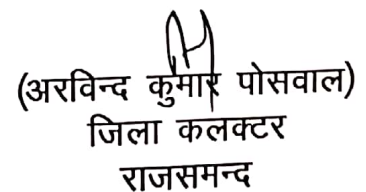 (अरविन्द कुमार पोसवाल)
जिला कलक्टर
राजसमन्द